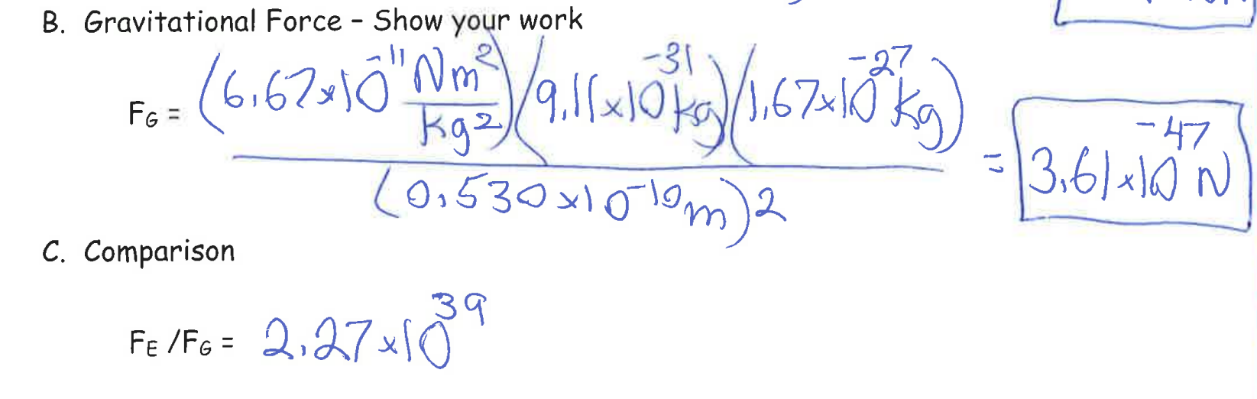 B. Gravitational Force – Show your work
F_G = (6.67×10⁻¹¹ Nm²/kg²)(9.11×10⁻³¹ kg)(1.67×10⁻²⁷ kg) = 3.61×10⁻⁴⁷ N
(0.530×10⁻¹⁰ m)²
C. Comparison
F_E /F_G = 2.27×10³⁹